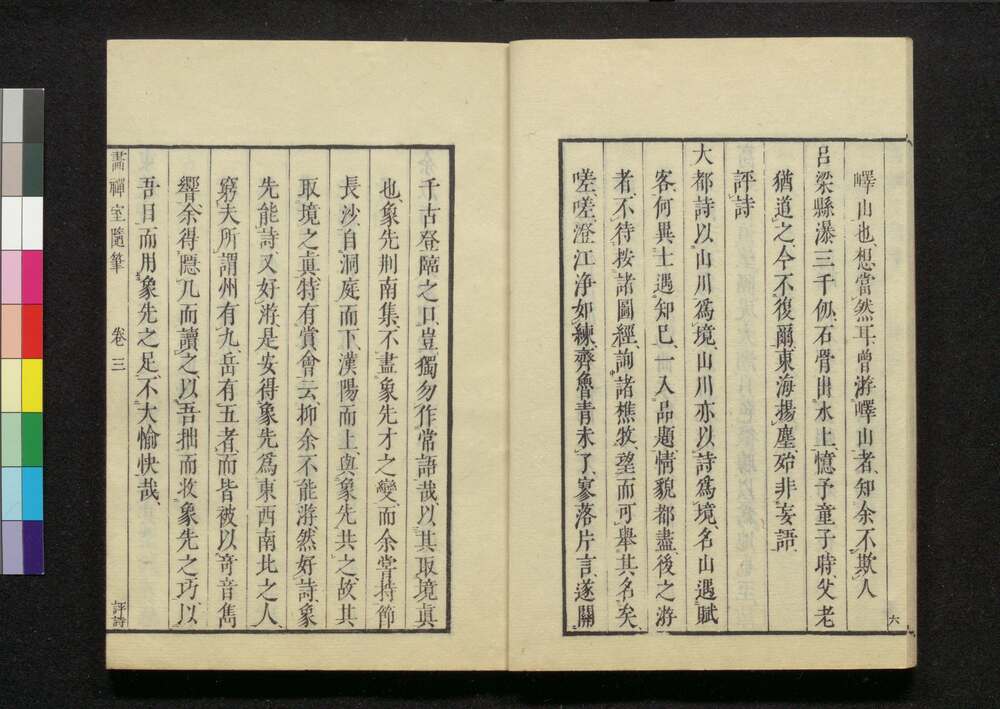 嶧山也、想當然耳、曾游嶧山者、知余不欺人
呂梁縣瀑三千仞、石骨出水上、憶予童子時父老
猶道之、今不復爾、東海揚塵、殆非妄語、
評詩
大都詩以山川爲境、山川亦以詩爲境、名山遇賦
客、何異士遇知己、一入品題、情貌都盡、後之游
者、不待按諸圖經、詢諸樵牧、望而可舉其名矣、
嗟嗟、澄江淨如練、齊魯青未了、寥落片言、遂關
六
千古登臨之口、豈獨勿作常語哉、以其取境眞
也、象先荆南集、不盡象先才之變、而余嘗持節
長沙、自洞庭而下、漢陽而上、與象先共之、故其
取境之眞、特有賞會云、抑余不能游、然好詩、象
先能詩又好游、是安得象先爲東西南北之人、
窮夫所謂州有九、岳有五者、而皆被以奇音雋
響、余得隱几而讀之、以吾拙而收象先之巧、以
吾目而用象先之足、不大愉快哉、
畫禪室隨筆 卷三 評詩